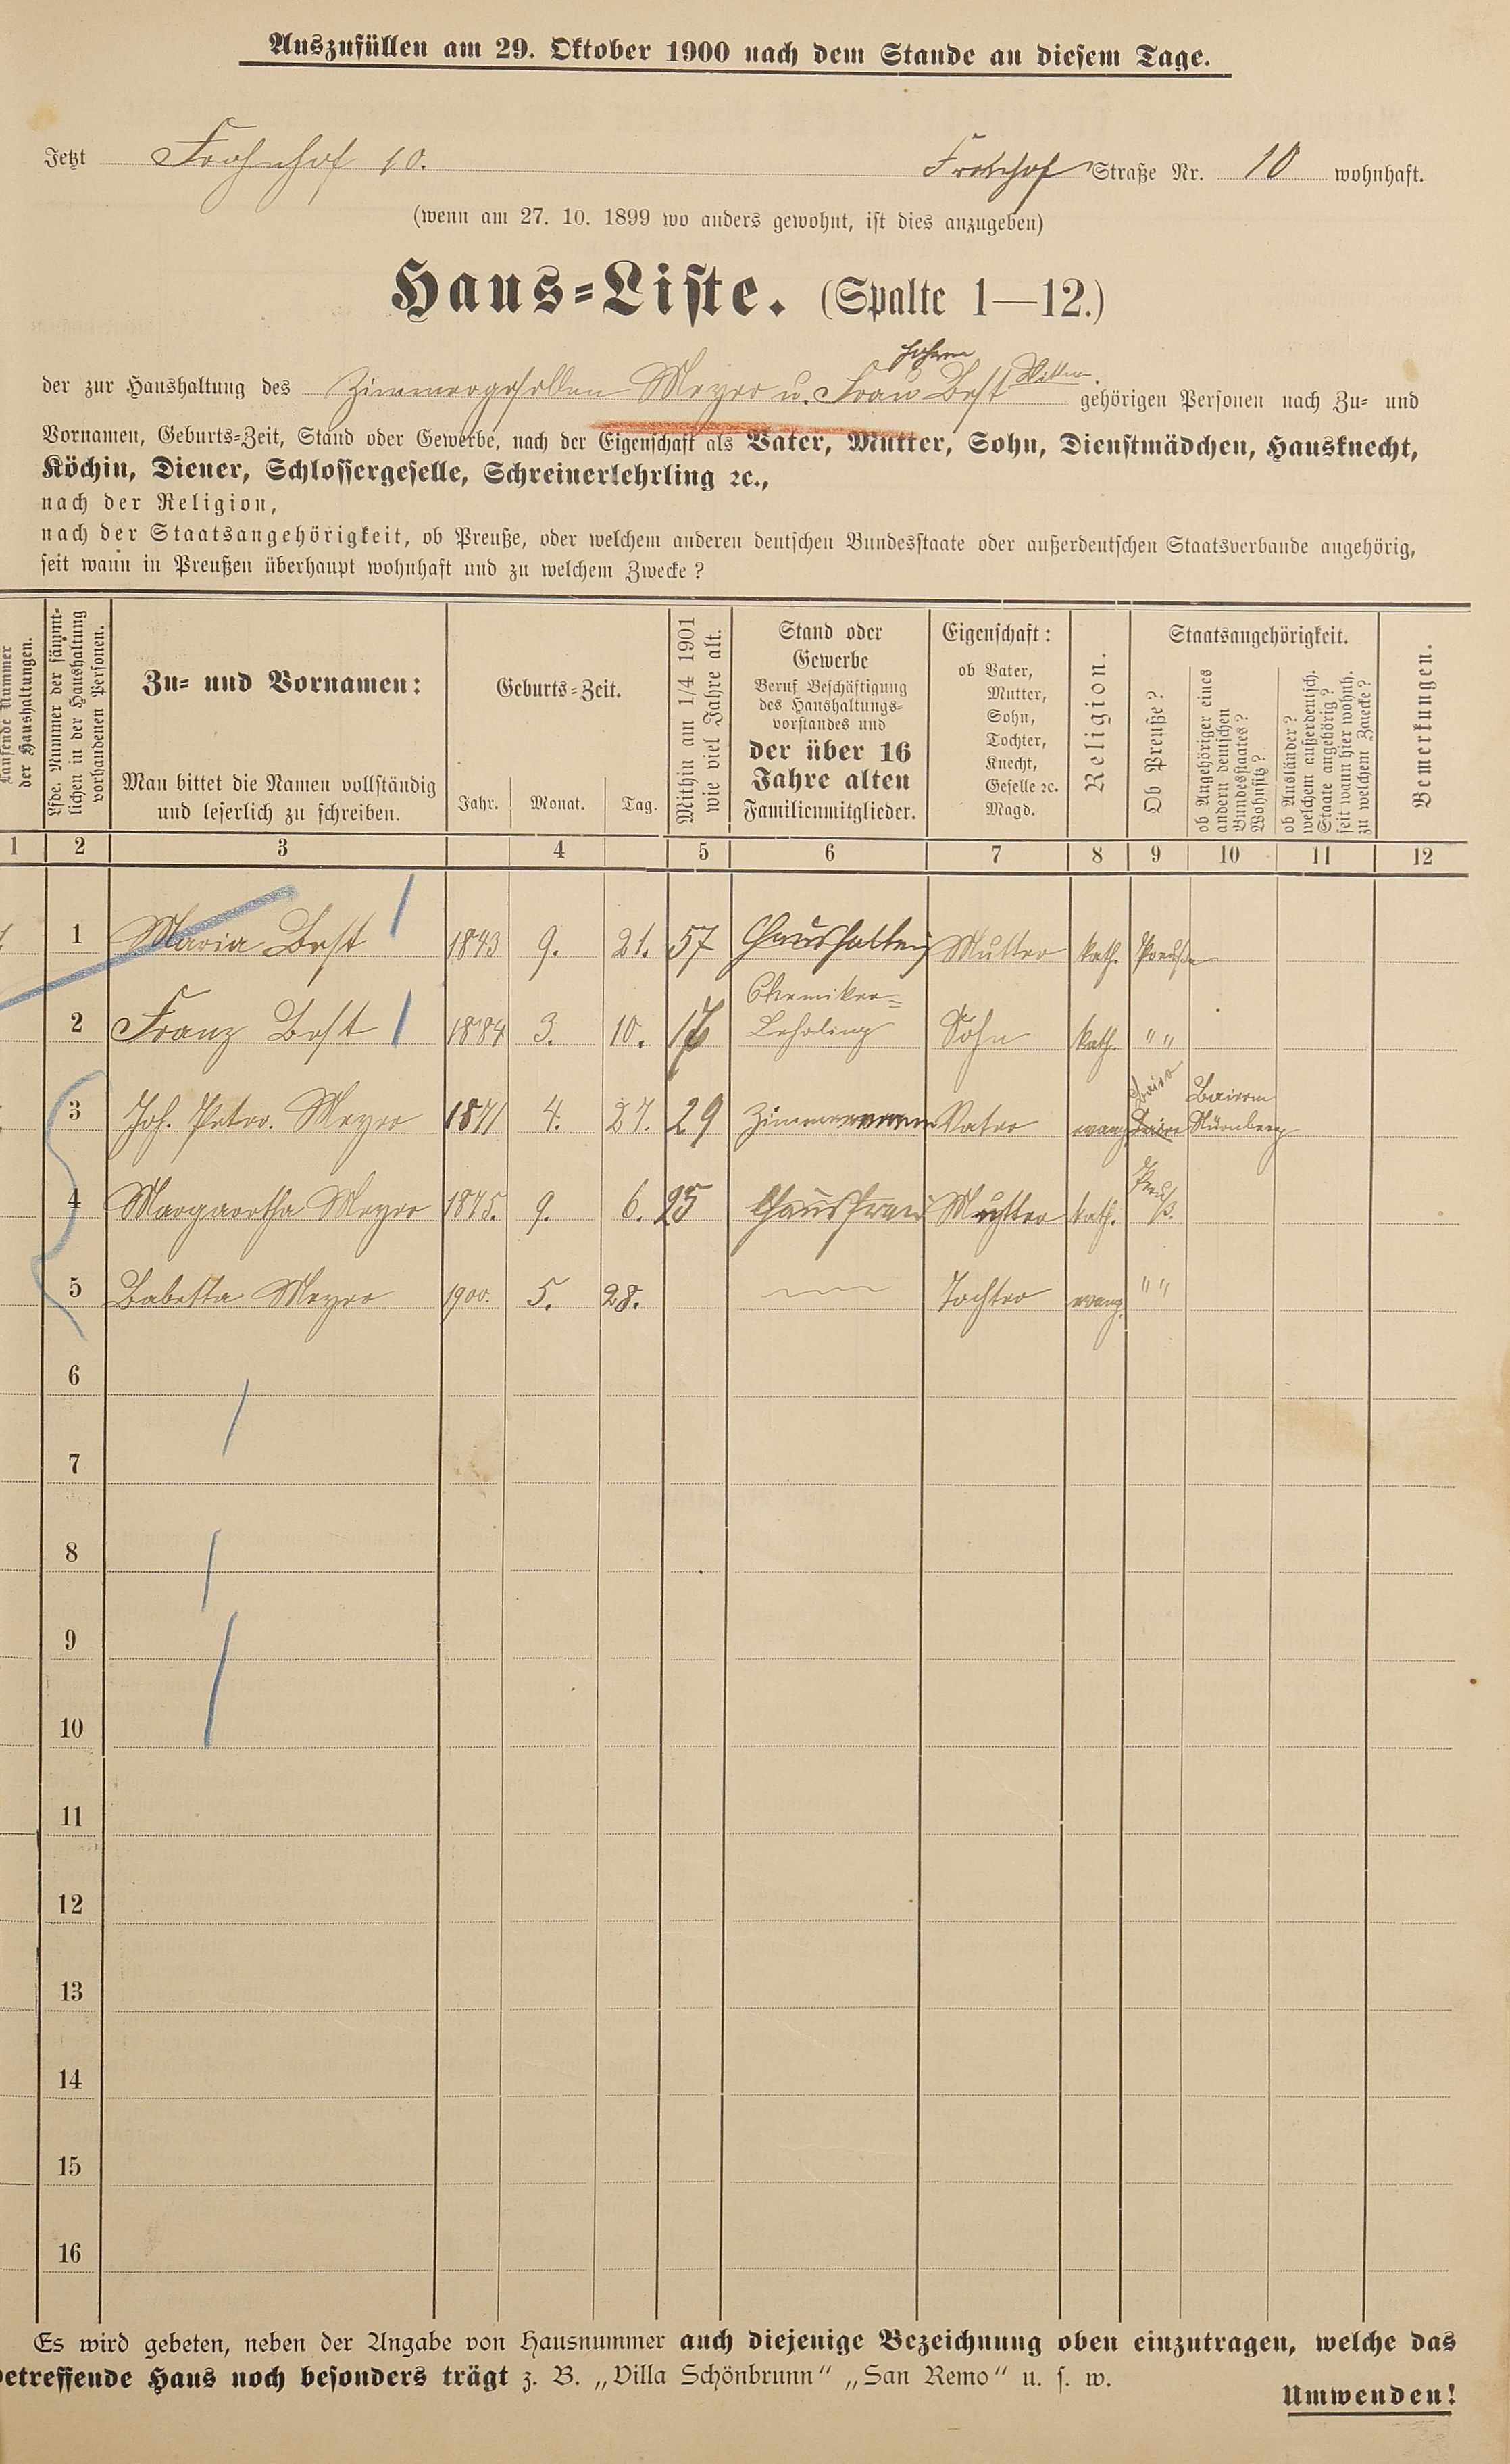 Auszufüllen am 29. Oktober 1900 nach dem Stande an diesem Tage.
Jetzt Frohnhof 10. Frohnhof Straße Nr. 10 wohnhaft.
(wenn am 27. 10. 1899 wo anders gewohnt, ist dies anzugeben)
Haus-Liste. (Spalte 1—12.)
der zur Haushaltung des Zimmergesellen Meyer u. Frau Best gehörigen Personen nach Zu- und
Vornamen, Geburts-Zeit, Stand oder Gewerbe, nach der Eigenschaft als Vater, Mutter, Sohn, Dienstmädchen, Hausknecht,
Köchin, Diener, Schlossergeselle, Schreinerlehrling ꝛc.,
nach der Religion,
nach der Staatsangehörigkeit, ob Preuße, oder welchem anderen deutschen Bundesstaate oder außerdeutschen Staatsverbande angehörig,
seit wann in Preußen überhaupt wohnhaft und zu welchem Zwecke?
Laufende Nummer
der Haushaltungen.
Lfde. Nummer der sämmt-
lichen in der Haushaltung
vorhandenen Personen.
Zu- und Vornamen:
Man bittet die Namen vollständig
und leserlich zu schreiben.
Geburts-Zeit.
Jahr. Monat. Tag.
Mithin am 1/4 1901
wie viel Jahre alt.
Stand oder
Gewerbe
Beruf Beschäftigung
des Haushaltungs-
vorstandes und
der über 16
Jahre alten
Familienmitglieder.
Eigenschaft:
ob Vater,
Mutter,
Sohn,
Tochter,
Knecht,
Geselle ꝛc.
Magd.
Religion.
Staatsangehörigkeit.
Ob Preuße?
ob Angehöriger eines
andern deutschen
Bundesstaates?
Wohnsitz?
ob Ausländer?
welchem außerdeutsch.
Staate angehörig?
seit wann hier wohnh.
zu welchem Zwecke?
Bemerkungen.
1 2 3 4 5 6 7 8 9 10 11 12
1 Maria Best 1843 9. 21. 57 Haushaltung Mutter kath. Preuße
2 Franz Best 1884 3. 10. Chemiker=
Lehrling Sohn kath. " "
3 Joh. Peter. Meyer 1871 4. 27. 29 Zimmermann Vater evang. Baiern
Nürnberg
4 Margaretha Meyer 1875. 9. 6. 25 Hausfrau Mutter kath. Preuß.
5 Babetta Meyer 1900. 5. 28. Tochter evang. " "
6
7
8
9
10
11
12
13
14
15
16
Es wird gebeten, neben der Angabe von Hausnummer auch diejenige Bezeichnung oben einzutragen, welche das
betreffende Haus noch besonders trägt z. B. „Villa Schönbrunn“ „San Remo“ u. s. w.
Umwenden!